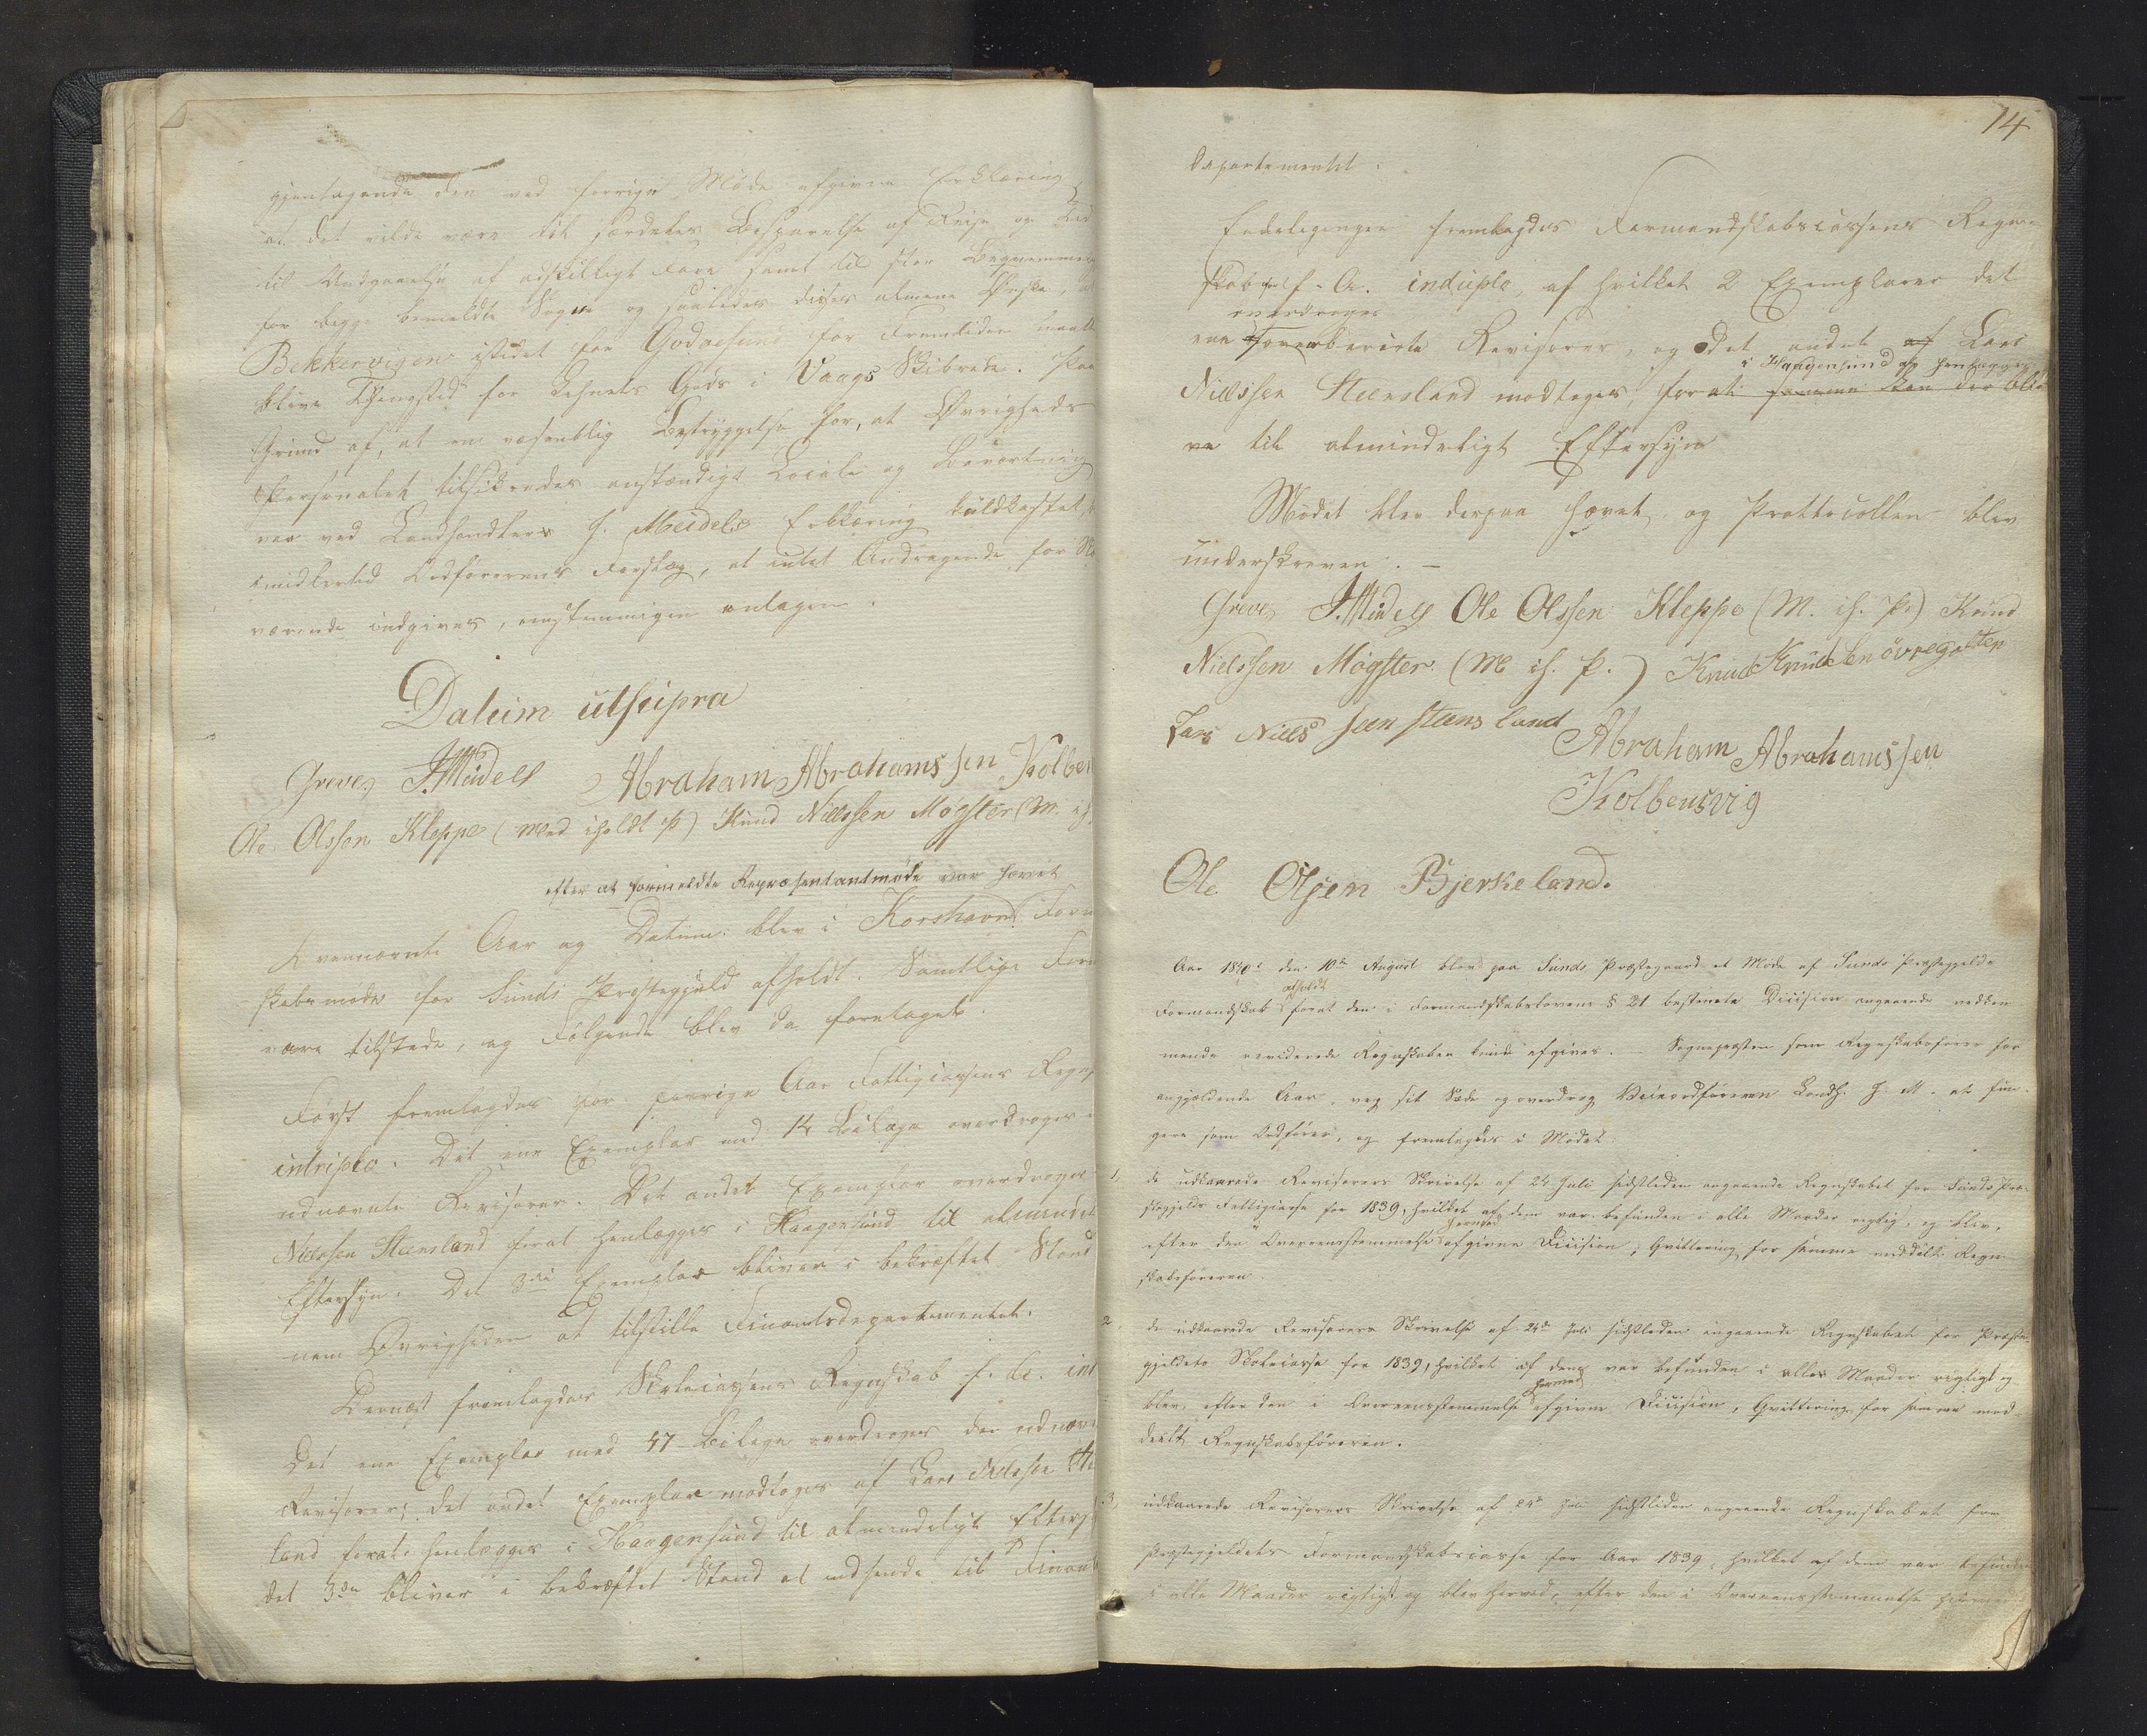 gjentagende den ved forrige Møde afgivne Erklæring
at det vilde være til særdeles Besparelse af Reise og Tid
til Undgaaelse af adskilligt Fare samt til stor Beqvemme
for begge bemeldte Sogne og saaledes disses almene Ønske, at
Bekkervigen istedet for Godøesund for Fremtiden maatte
blive Thingsted for Lehnets Gods i Vaags Skibrede. Paa
Grund af, at en væsentlig Betryggelse for, at Øvrigheds
Personalet tilsikredes anstændigt Locale og Bevertning
var ved Landhandler J. Meidels Erklæring kuldkastet,
imidlertid Ordførerens Forslag, at intet Andragende for
værende indgives, eenstemmigen antagen.
Datum utsupra
Greve, J. Meidell Abraham Abrahamssen Kolben
Ole Olssen Kleppe (med iholdt P) Knud Nielssen Møgster (M. ih.
efter at formeldte Repræsentantmøde var hævet
Ovennævnte Aar og Datum blev i Korshavn Form
skabsmøde for Sunds Præstegjeld afholdt. Samtlige Form
vare tilstede, og Følgende blev da foretaget.
Først fremlagdes for forrige Aar Fattigcassens Regns
intriplo. Det ene Exemplar med 14 Bilage overdroges
udnævnte Revisorer. Det andet Exemplar overdroges
Nielssen Steensland forat henlægges i Haagensund til almindel
Eftersyn. Det 3die Exemplar bliver i bekræftet Stand
nem Øvrigheden at tilstille Finantsdepartementet.
Dernæst fremlagdes Skolecassens Regnskab f. A. int
Det ene Exemplar med 47 Bilage overdroges de udnævn
Revisorer; det andet Exemplar modtoges af Lars Nielssen Ste
land forat henlægges i Haagensund til almindeligt Eftersy
det 3die bliver i bekræftet Stand at indsende til Finants
14
Departementet.
Endeligen fremlagdes Formandskabscassens Regn
skab for f. A. induplo, af hvilket 2 Exemplarer det
overdroges
ene Revisorer, og det andet af Lars
i Haagensund at henlægges
Nielssen Steensland modtoges, forat samme kan der bli
ve til almindeligt Eftersyn
Mødet blev derpaa hævet og Prottocollen blev
underskreven. –
Greve, J. Meidell Ole Olssen Kleppe (M. ih. P.) Knud
Nielssen Møgster (M ih. P.) Knud Knudsen øvregolten
Lars Niels sen steens land Abraham Abrahamssen
Kolbensvig
Ole Olsen Bjerkeland.
Aar 1840 den 10de August blev paa Sunds Præstegaard et Møde af Sunds Præstegjelds
afholdt
Formandskab forat den i Formandskabslovens § 21 bestemte Decision angaaende vedkom
mende reviderede Regnskaber kunde afgives. – Sognepræsten som Regnskabsfører for
angjældende Aar, veg sit Sæde og overdrog Viceordføreren Landh. J. M. at fun
gere som Ordfører, og fremlagdes i Mødet:
1, de udkaarede Revisorers Skrivelse af 24 Juli sidstleden angaaende Regnskabet for Sunds Præ
stegjelds Fattigcasse for 1839, hvilket af dem var befunden i alle Maader rigtig, og blev,
hermed
efter den i Overeensstemmelse afgivne Decision, Qvittering for samme meddelt Regn
skabsføreren.
2, de udkaarede Revisorers Skrivelse af 24de Juli sidstleden angaaende Regnskabet for Præste
gjeldets Skolecasse for 1839, hvilket af dem var befunden i alle Maader rigtigt og
hermed
blev, efter den i Overeensstemmelse afgivne Decision, Qvittering for samme med
deelt Regnskabsføreren.
3, udkaarede Revisorers Skrivelse af 24de Juli sidstleden angaaende Regnskabet for
Præstegjeldets Formandskabscasse for Aar 1839, hvilket af dem var befunden
i alle Maader rigtigt og blev herved, efter den i Overeensstemmelse hermed